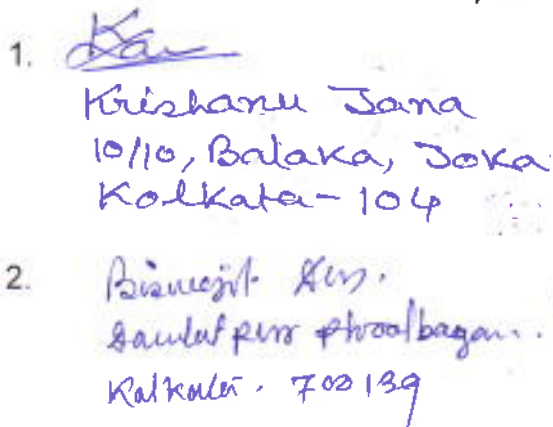 1.
Krishanu Jana
10/10, Balaka, Joka
Kolkata - 104
2. Biswajit
Daulatpur phoolbagan.
Kolkata. 700139